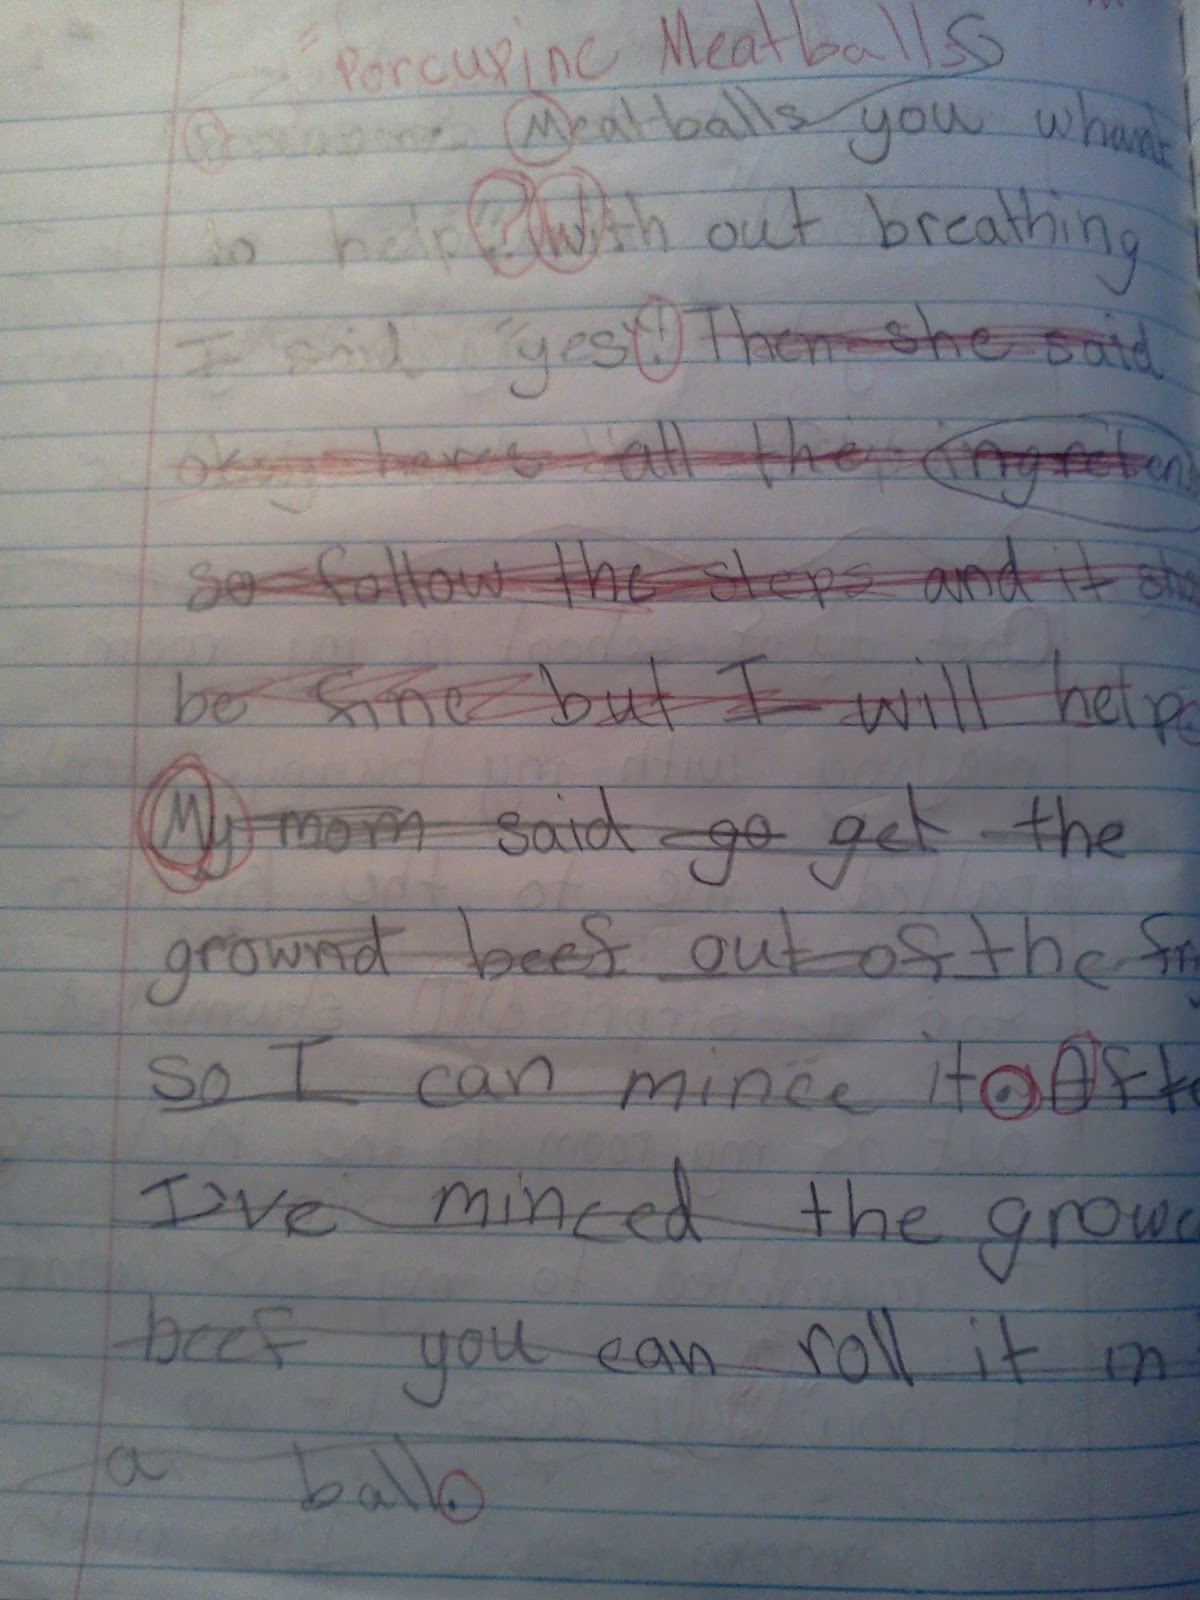 "Porcupine Meatballs
Meatballs you whant
to help? With out breathing
I said "yes"! Then she said
okay heres all the ingreten
so follow the steps and it sho
be fine but I will help
My mom said go get the
grownd beef out of the fri
so I can mince it. Afte
I've minced the grow
beef you can roll it in
a ball.